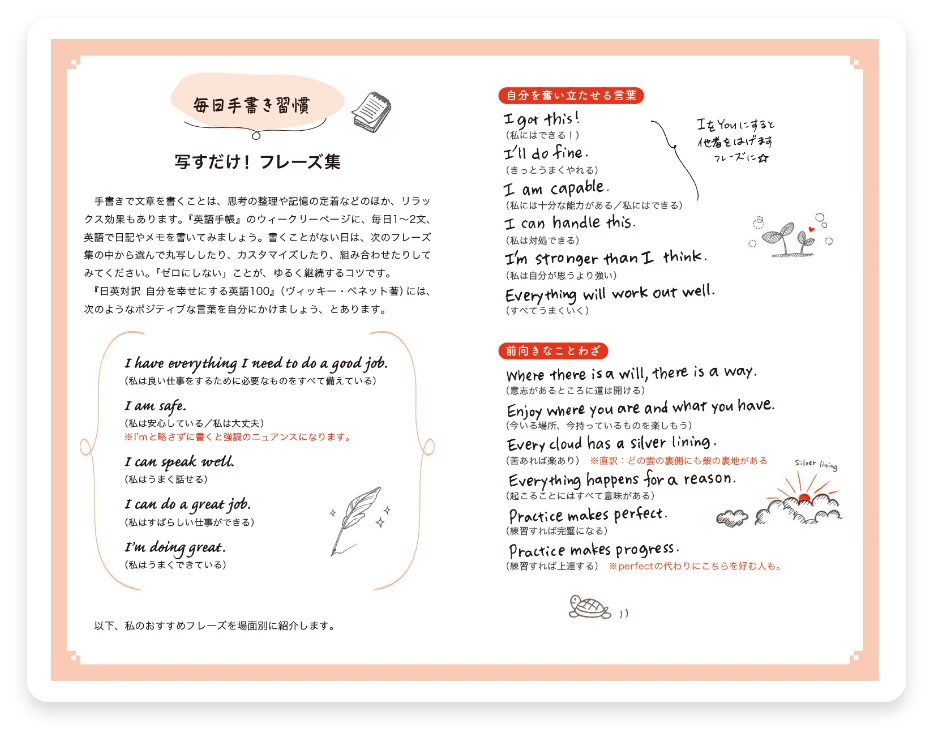 毎日手書き習慣
写すだけ！ フレーズ集
手書きで文章を書くことは、思考の整理や記憶の定着などのほか、リラッ
クス効果もあります。『英語手帳』のウィークリーページに、毎日1〜2文、
英語で日記やメモを書いてみましょう。書くことがない日は、次のフレーズ
集の中から選んで丸写ししたり、カスタマイズしたり、組み合わせたりして
みてください。「ゼロにしない」ことが、ゆるく継続するコツです。
『日英対訳 自分を幸せにする英語100』（ヴィッキー・ベネット著）には、
次のようなポジティブな言葉を自分にかけましょう、とあります。
I have everything I need to do a good job.
（私は良い仕事をするために必要なものをすべて備えている）
I am safe.
（私は安心している／私は大丈夫）
※I'mと略さずに書くと強調のニュアンスになります。
I can speak well.
（私はうまく話せる）
I can do a great job.
（私はすばらしい仕事ができる）
I'm doing great.
（私はうまくできている）
以下、私のおすすめフレーズを場面別に紹介します。
自分を奮い立たせる言葉
I got this!
（私にはできる！）
I'll do fine.
（きっとうまくやれる）
I am capable.
（私には十分な能力がある／私にはできる）
I can handle this.
（私は対処できる）
I'm stronger than I think.
（私は自分が思うより強い）
Everything will work out well.
（すべてうまくいく）
IをYouにすると
他者をはげます
フレーズに☆
前向きなことわざ
Where there is a will, there is a way.
（意志があるところに道は開ける）
Enjoy where you are and what you have.
（今いる場所、今持っているものを楽しもう）
Every cloud has a silver lining.
（苦あれば楽あり） ※直訳：どの雲の裏側にも銀の裏地がある
Everything happens for a reason.
（起こることにはすべて意味がある）
Practice makes perfect.
（練習すれば完璧になる）
Practice makes progress.
（練習すれば上達する） ※perfectの代わりにこちらを好む人も。
silver lining